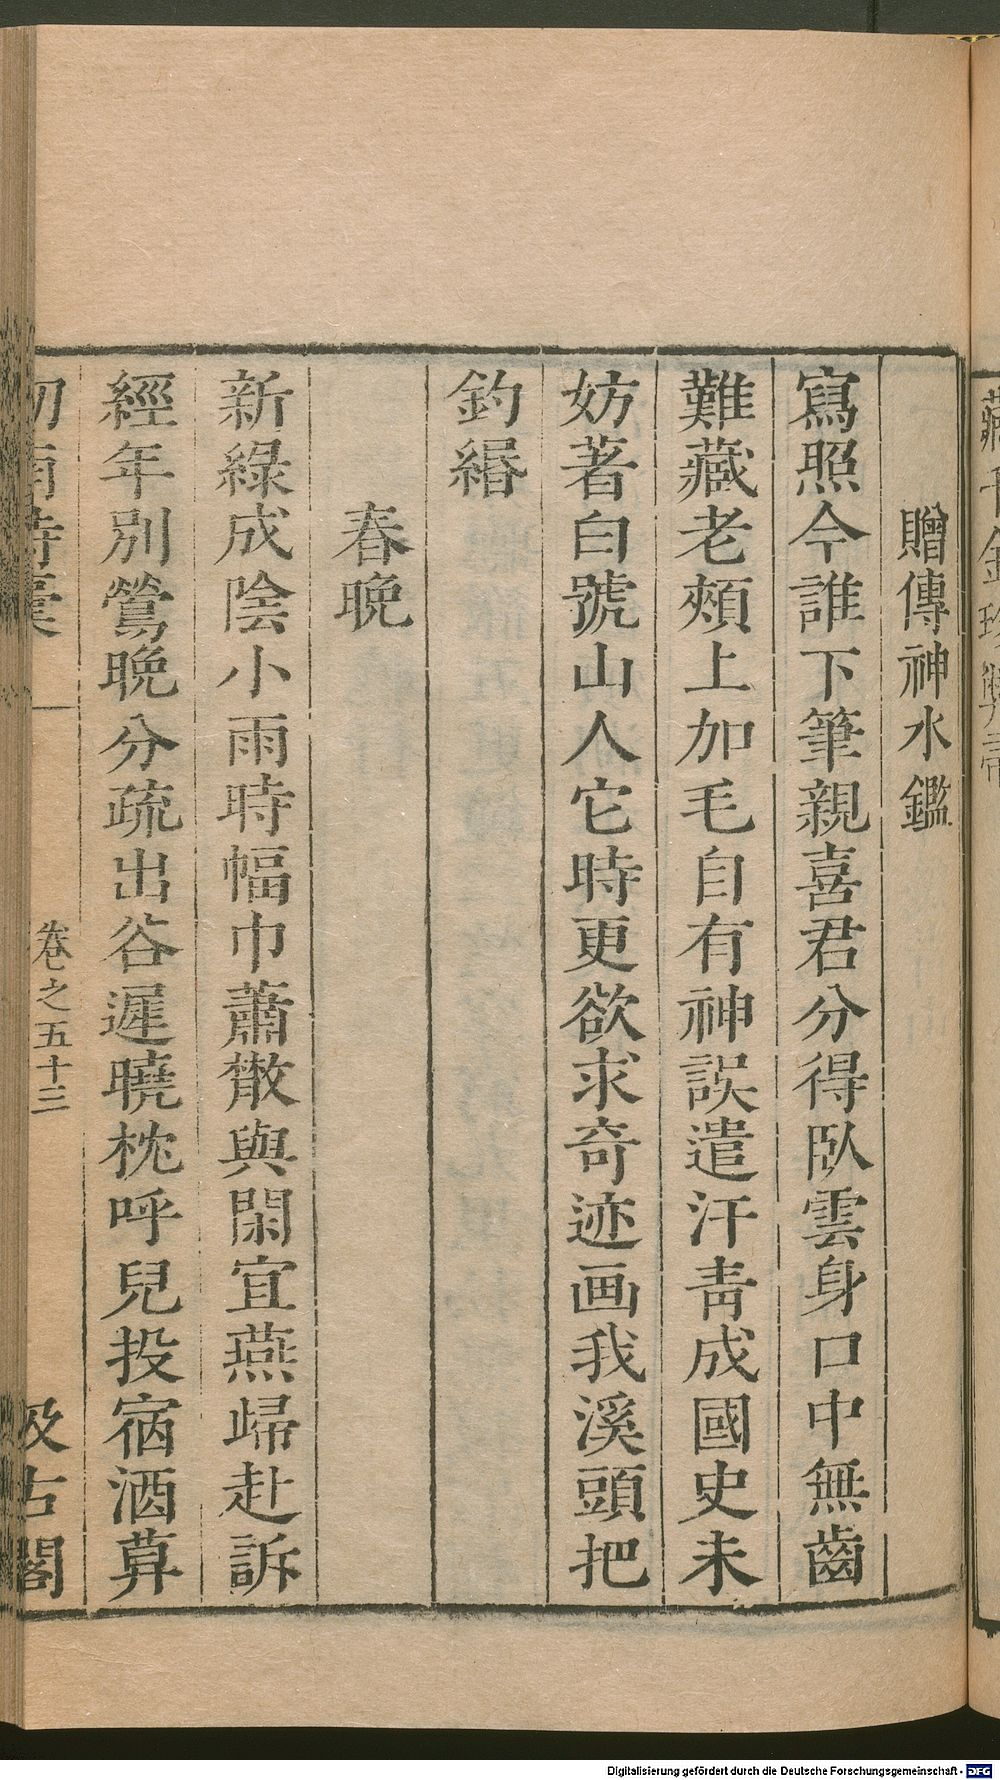 贈傳神水鑑
寫照今誰下筆親喜君分得臥雲身口中無齒
難藏老頰上加毛自有神誤遣汗青成國史未
妨著白號山人它時更欲求奇迹画我溪頭把
釣緡
春晚
新綠成陰小雨時幅巾蕭散與閑宜燕歸赴訴
經年別鶯晚分疏出谷遲曉枕呼兒投宿酒葛
劍南詩稾
卷之五十三
汲古閣
Digitalisierung gefördert durch die Deutsche Forschungsgemeinschaft - DFG